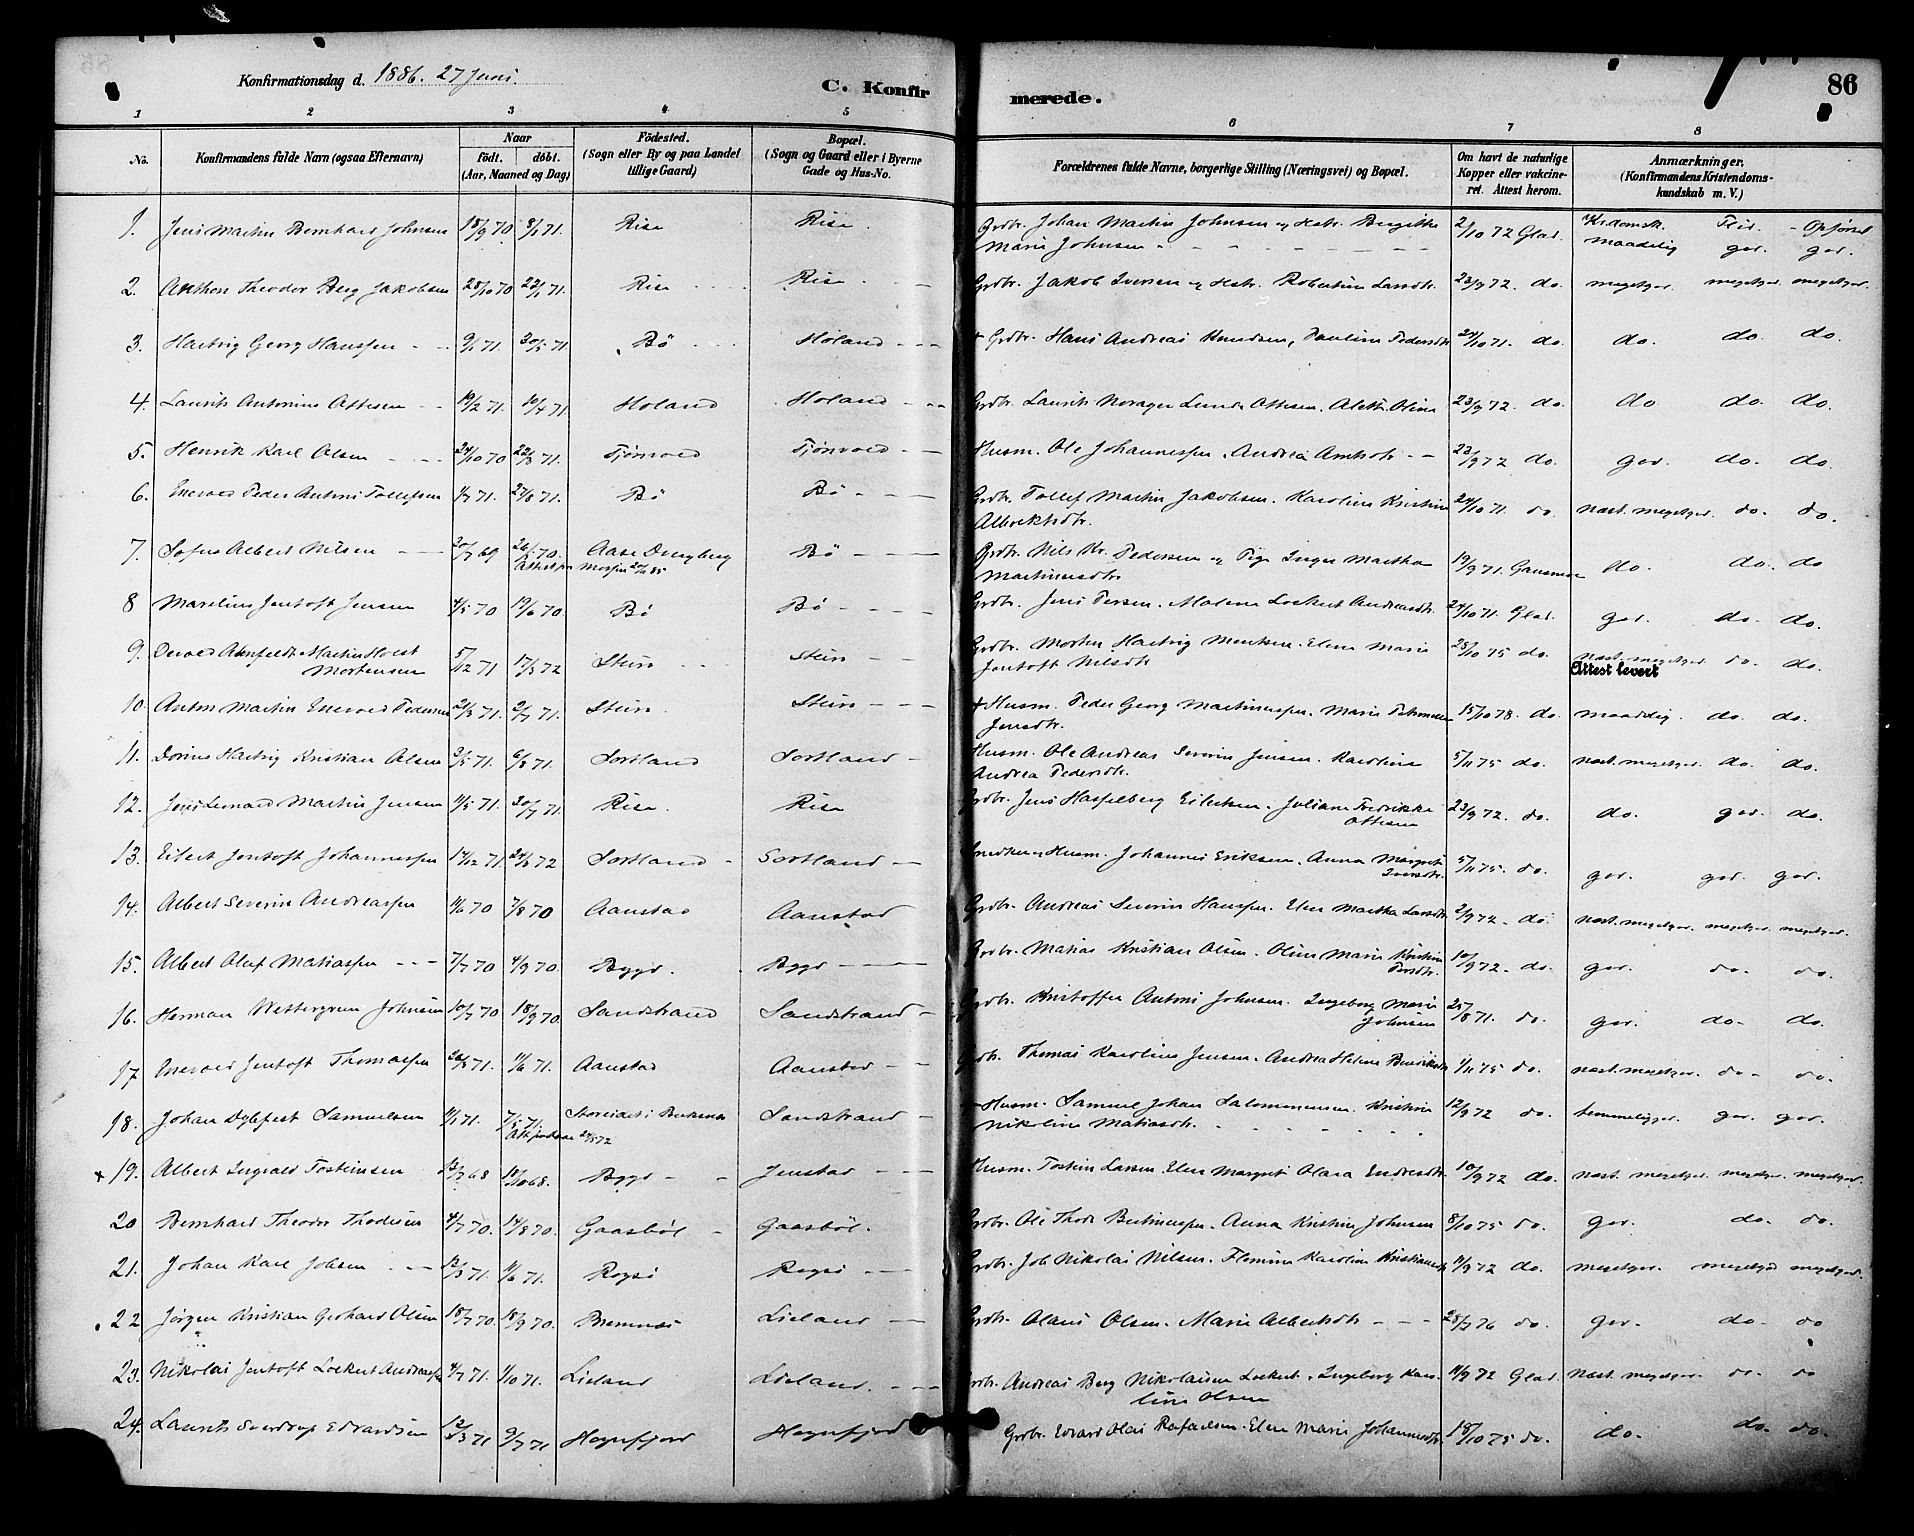 Konfirmationsdag d. 1886. 27 Juni.
C. Konfirmerede.
86
1 2 3 4 5 6 7 8
No.
Konfirmandens fulde Navn (ogsaa Efternavn)
Naar
födt. döbt.
(Aar, Maaned og Dag)
Födested.
(Sogn eller By og paa Landet
tillige Gaard)
Bopæl.
(Sogn og Gaard eller i Byerne
Gade og Hus-No.
Forældrenes fulde Navne, borgerlige Stilling (Næringsvei) og Bopæl.
Om havt de naturlige
Kopper eller vakcine-
ret. Attest herom.
Anmærkninger.
(Konfirmandens Kristendoms-
kundskab m. V.)
1. Jens Martin Bernhard Johnsen 18/9 70 8/1 71. Risø Risø. Grdbr. Johan Martin Johnsen og Hstr. Bergithe 2/10 72 Glad. Kr.domsk. Flid. - Opførsel
Marie Johnsen maadelig gor. gor.
2. Anthon Theodor Berg Jakobsen 28/10 70 22/1 71. Risø Risø. Grdbr. Jakob Iversen og Hstr. Robertine Larsdtr. 23/9 72. do. megetgor. megetgor. megetgor.
3. Hartvig Georg Hanssen 9/1 71. 30/5 71. Bö Holand + Grdbr. Hans Andreas Knudsen, Pauline Pedersdtr 24/10 71. do. do. do. do.
4. Laurits Antonius Ottesen 19/2 71. 10/4 71. Holand Holand Grdbr. Laurits Norager Lund Ottesen. Aleth Olsen 23/9 72. do. do do. do.
5. Henrik Karl Olsen 24/10 70 22/3 71. Tjönvold Tjönvold Husm. Ole Johannessen. Andrea Amtsdtr 23/9 72 do. gor. do. do.
6. Enevold Peder Antoni Tollefsen 1/7 71. 27/8 71. Bö Bö Grdbr. Tollef Martin Jakobsen. Karoline Kristine 24/10 71. do. næst. megetgor. do. do.
Albrektsdtr.
7. Sofus Albert Nilsen 20/7 69 26/5 70. Bö Grdbr. Nils Kr. Pedersen og Pige Inger Martha 19/9 71. do. do. do
Martinusdtr
8 Marelius Jentoft Jensen 4/5 70 19/6 70. Bö Bö Grdbr. Jens Persen. Malene Lockert Andreasdtr. 24/10 71. Glad. gor. do. do.
9. Martin Holst 5/12 71 17/3 72 Stein Stein Grdbr. Morten Hartvig Mentsen. Elen Marie 25/10 75 do. næst. megetgor. do. do.
Mortensen Jentoft Nilsdtr Attest levert
10. Anton Martin Enevold Pedersen 21/3 71. 2/7 71. Stein. Stein + Husm. Peder Georg Martinussen. Marie Petronelle 15/10 78. do. maadelig. do. do.
Jensdtr.
11. Dorius Hartvig Kristian Olsen 3/5 71. 6/8 71. Sortland Sortland Husm. Ole Andreas Severin Jensen. Karoline 5/11 75 do. næst. megetgor. do. do.
Andrea Pedersdtr.
12. Jens Leonard Martin Jensen 11/5 71. 30/7 71. Risø. Risø Grdbr. Jens Hasselberg Eilertsen. Juliane Fredrikke 23/9 72. do. do. gor. do.
Ottesen
13. Eilert Jentoft Johannessen 14/12 71. 24/3 72 Sortland Sortland Snedker og Husm. Johannes Eriksen. Anna Margrete 5/11 75. do. gor. gor. gor.
Iversdtr.
14. Albert Severin Andreassen 11/6 70 7/8 70 Aanstad Aanstad Grdbr. Andreas Severin Hanssen. Elen Martha Larsdtr 2/9 72 do. næst. megetgor. megetgor. megetgor.
15. Albert Oluf Matiassen 7/7 70 4/9 70. Bygd. Bygd Grdbr. Matias Kristian Olsen. Oline Marie Kristine 10/9 72. do. gor. do. do.
Persdtr.
16. Herman Wettergren Johnsen 10/7 70 18/9 70. Sandstrand Sandstrand Grdbr. Kristoffer Antoni Johnsen. Ingeborg Marie 25/8 71. do. gor. do. do.
Johnsen
17 Enevold Jentoft Thomassen 20/3 71. 11/6 71. Aanstad Aanstad Grdbr. Thomas Karolius Jensen. Andrea Helene Benriksdtr 1/11 75 do. næst. megetgor. do. do.
18. Johan Dybfest Samuelsen 11/1 71. 7/5 71. Sandstrand Husm. Samuel Johan Salomonsen. Kristine 12/9 72 do. temmeliggor. gor. gor.
Nikoline Matiasdtr.
+ 19. Albert Ingvald Tosteinsen 13/7 68 18/10 68. Bygd Jenstad Husm. Tostein Larsen. Elen Margret Olava Endresdtr. 10/9 72 do. næst megetgor. megetgor. megetgor.
20 Bernhard Theodor Thodesen 4/7 70. 14/8 70. Gaasböl Gaasböl. Grdbr. Ole Thode Bertinussen. Anna Kristine Johnsen 8/10 75 do. gor. do. do.
21. Johan Karl Jobsen 12/3 71. 11/6 71. Rogsö Rogsö Grdbr. Job Nikolai Nilsen. Flemine Karoline Kristiansdtr 11/9 72 do. megetgor. megetgod megetgod.
22 Jørgen Kristian Gerhard Olsen 18/7 70. 18/9 70. Bremnes Lieland Grdbr. Olaus Olsen. Marie Albertsdtr 28/7 76 do. gor. do. do
23. Nikolai Jentoft Lockert Andreassen 4/7 71. 1/10 71. Lieland Lieland Grdbr. Andreas Berg Nikolaisen Lockert. Ingeborg Karo- 11/9 72 Glad. næst megetgor. do. do
line Olsen
24. Laurits Sverdrup Edvardsen 12/3 71 9/7 71 Hognfjord Hognfjord Grdbr. Edvard Olai Rafaelsen. Elen Marie Johannesdtr. 18/10 75 do. do. do. do.